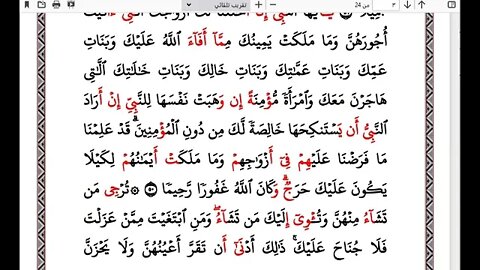 تقريب تلقائي
من 24
٣
جَمِيلًا ۝ يَـٰٓأَيُّهَا ٱلنَّبِىُّ إِنَّآ أَحْلَلْنَا لَكَ أَزْوَٰجَكَ ٱلَّـٰتِىٓ ءَاتَيْتَ
أُجُورَهُنَّ وَمَا مَلَكَتْ يَمِينُكَ مِمَّآ أَفَآءَ ٱللَّهُ عَلَيْكَ وَبَنَاتِ
عَمِّكَ وَبَنَاتِ عَمَّـٰتِكَ وَبَنَاتِ خَالِكَ وَبَنَاتِ خَـٰلَـٰتِكَ ٱلَّـٰتِى
هَاجَرْنَ مَعَكَ وَٱمْرَأَةً مُّؤْمِنَةً إِن وَهَبَتْ نَفْسَهَا لِلنَّبِىِّ إِنْ أَرَادَ
ٱلنَّبِىُّ أَن يَسْتَنكِحَهَا خَالِصَةً لَّكَ مِن دُونِ ٱلْمُؤْمِنِينَ ۗ قَدْ عَلِمْنَا
مَا فَرَضْنَا عَلَيْهِمْ فِىٓ أَزْوَٰجِهِمْ وَمَا مَلَكَتْ أَيْمَـٰنُهُمْ لِكَيْلَا
يَكُونَ عَلَيْكَ حَرَجٌ ۗ وَكَانَ ٱللَّهُ غَفُورًا رَّحِيمًا ۝٥٠ ۞ تُرْجِى مَن
تَشَآءُ مِنْهُنَّ وَتُـْٔوِىٓ إِلَيْكَ مَن تَشَآءُ ۖ وَمَنِ ٱبْتَغَيْتَ مِمَّنْ عَزَلْتَ
فَلَا جُنَاحَ عَلَيْكَ ۚ ذَٰلِكَ أَدْنَىٰٓ أَن تَقَرَّ أَعْيُنُهُنَّ وَلَا يَحْزَنَّ